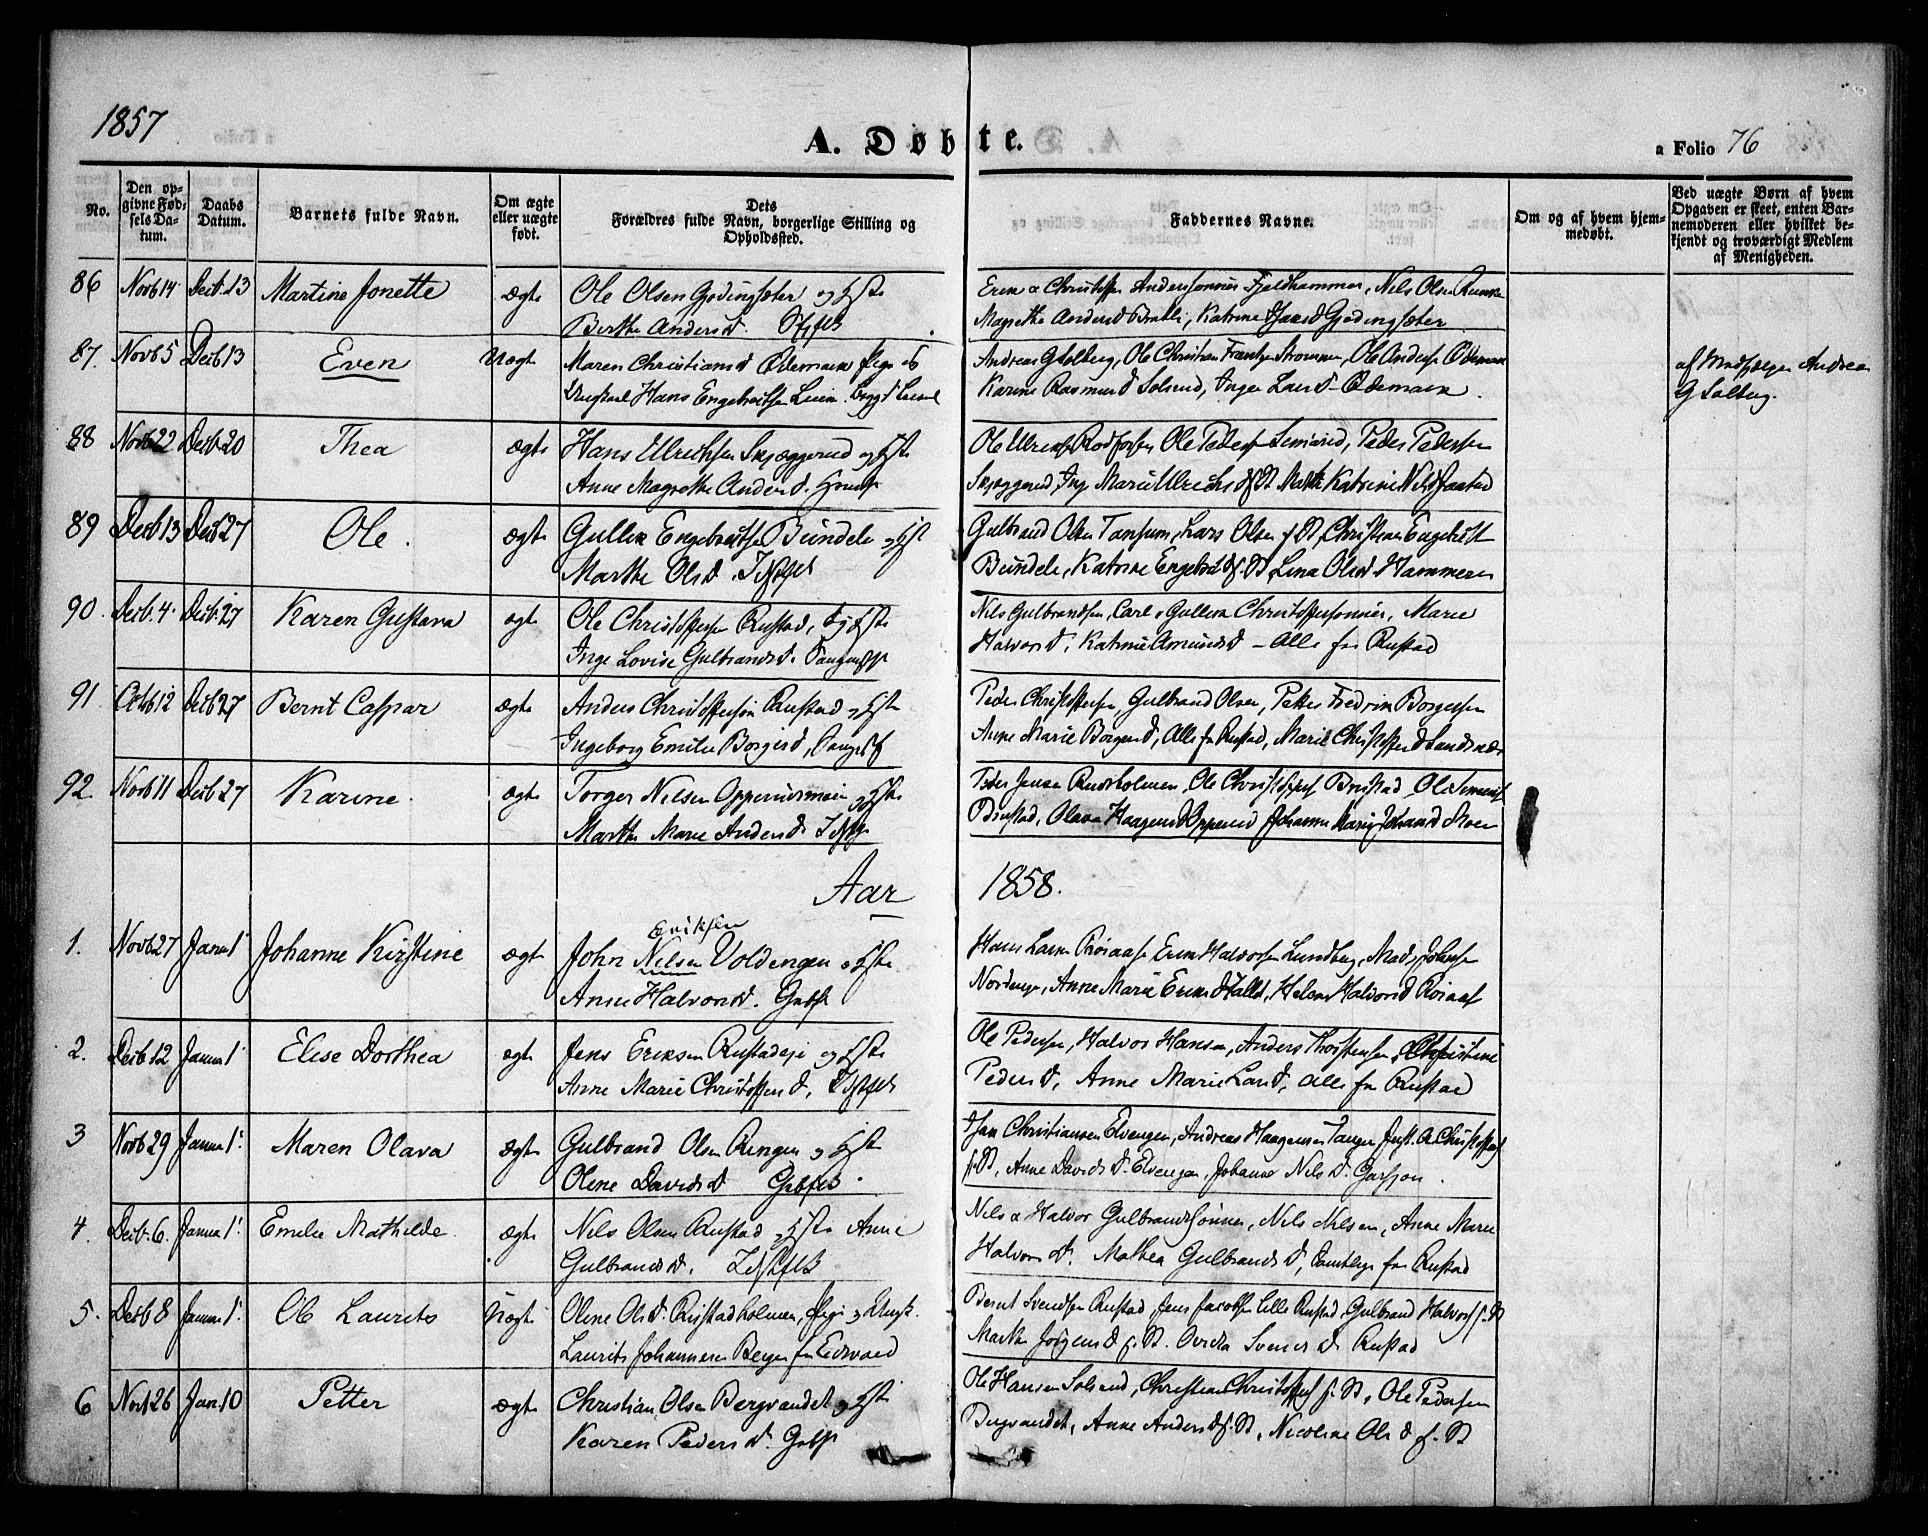 1857
A. Døbte.
a Folio 76
No.
Den opgivne Fødsels Datum.
Daabs Datum.
Barnets fulde Navn.
Om ægte eller uægte født.
Dets Forældres fulde Navn, borgerlige Stilling og Opholdssted.
Faddernes Navne.
Om og af hvem hjemmedøbt.
Ved uægte Børn af hvem Opgaven er skeet, enten Barnemoderen eller hvilket bekjendt og troværdigt Medlem af Menigheden.
86 Novb 14 Decb. 13 Martine Jonette ægte Ole Olsen Gjødingsæter og Hste
Berthe Andersd.
Erik & Christoffer Anderssønner Fjeldhammer, Nils Olsen
Magrethe Andersd Bratli, Katrine Hansd Gjødingsæter
87. Novb 5 Decb 13 Even Uægte Maren Christiansd Ødemark Pige og
Ungkarl Hans Engebretsen
Andreas G Solberg, Ole Christian Frantzen Strømmen, Ole Anderss Ødemark
Karine Rasmusd Solerud, Inger Larsd Ødemark
af Andreas
G Solberg.
88 Novb 22 Decb 20 Thea ægte Hans Ulrichsen Skjæggerud og Hste
Anne Magrethe Andersd.
Ole Ulrichs Ole Peders Peder Pedersen
Skjæggerud, Marie Ulrichsd f. St Marthe Katrine Nilsd
89 Decb 13 Decb 27 Ole. ægte Gullik Engebretsen Bundele og Hst
Marthe Olsd.
Gulbrand Olsen Tansum, Lars Olsen f St, Christian Engebrets
Bundele, Katrine Engebretsd f. St, Lina Olsd Hammeren
90. Decb. 4. Decb. 27 Karen Gustava ægte Ole Christoffersen Rustad, Hste
Inge Lovise Gulbrandsd. Tangen
Nils Gulbrandsen, Carl & Gullik Christofferssønner, Marie
Halvorsd, Katrine Amundsd – Alle fra Rustad
91. Octb 12 Decb 27 Bernt Caspar ægte Anders Christoffersøn Rustad og Hste
Ingeborg Emilie Borgersd,
Peder Christoffersen, Gulbrand Olsen, Petter Fredrik Borgersen
Anne Marie Borgersd, Alle fra Rustad, Marie Christoffersd Sandsnæs
92. Novb 11 Decb 27 Karine. ægte Torger Nilsen og Hste
Marthe Marie Andersd.
Peder Jensen Ole Christoffers Brustad, Ole Simens
Brustad, Olava Haagensd Opperud Johanne Marie Johansd Moen
Aar 1858.
1. Novb 27 Janu 1 Johanne Kirstine ægte John Nilsen Eriksen Voldengen & Hste
Anne Halvorsd.
Hans Larsen Røiaas Erik Halvorsen Lundberg, Mads Johnsen
Nordenge, Anne Marie Eriksd Helene Halvorsd Røiaas
2. Decb 12 Janua 1 Elise Dorthea ægte Jens Eriksen Rustadeje og Hste
Anne Marie Christoffersd,
Ole Pedersen, Halvor Hansen, Anders Thorstensen, Christine
Pedersd, Anne Marie Larsd, alle fra Rustad
3 Novb 29 Janua 1. Maren Olava ægte Gulbrand Olsen Ringen og Hste
Olene Davidsd
Christiansen Elvengen, Andreas Haagensen Tangen
f. St, Anne Davidsd Elvengen, Johanne Nilsd Garsjøn.
4. Decb. 6. Janua 1. Emilie Mathilde. ægte Nils Olsen Rustad og Hste Anne
Gulbrandsd.
Nils & Halvor Gulbrandssønner, Nils Nilsen, Anne Marie
Halvorsd. Mathea Gulbrandsd, samtlige fra Rustad
5. Decb 8 Janua 1. Ole Laurits Uægte Olene Olsd. Rustadholmen, Pige og Ungk.
Laurits Johannesen Berger fra Edsvold
Bernt Svendsen Rustad, Jens Jacobsen Lille Rustad, Gulbrand Halvors f. St
Marthe Jørgensd f. St. Rustad
6 Novb 26 Jan. 10 Petter ægte Christian Olsen Bergvandet og Hste
Karen Pedersd.
Ole Hansen Solerud, Christian Christoffers f. St, Ole Pedersen
Bergvandet, Anne Andersd f. St, Nicoline Olsd f. St